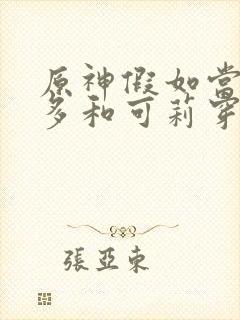 原神假如当
多和可莉穿
張亞東